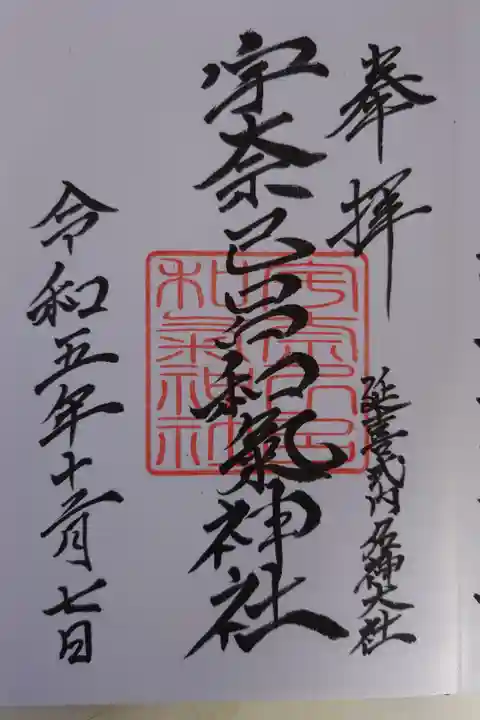 奉拝
延喜式内名神大社
宇奈己呂和氣神社
令和五年十一月七日